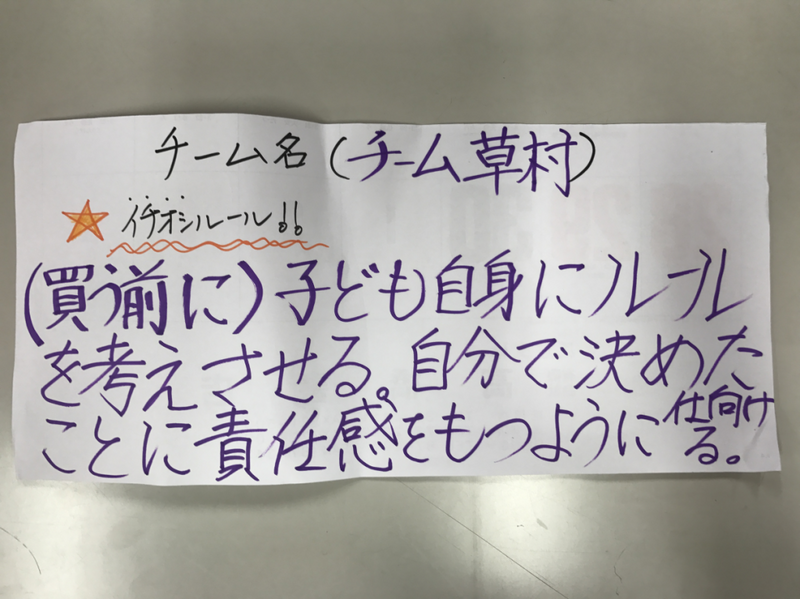 チーム名(チーム草村)
イチオシルール!!
(買う前に)子ども自身にルール
を考えさせる。自分で決めた
ことに責任感をもつように仕向け
る。